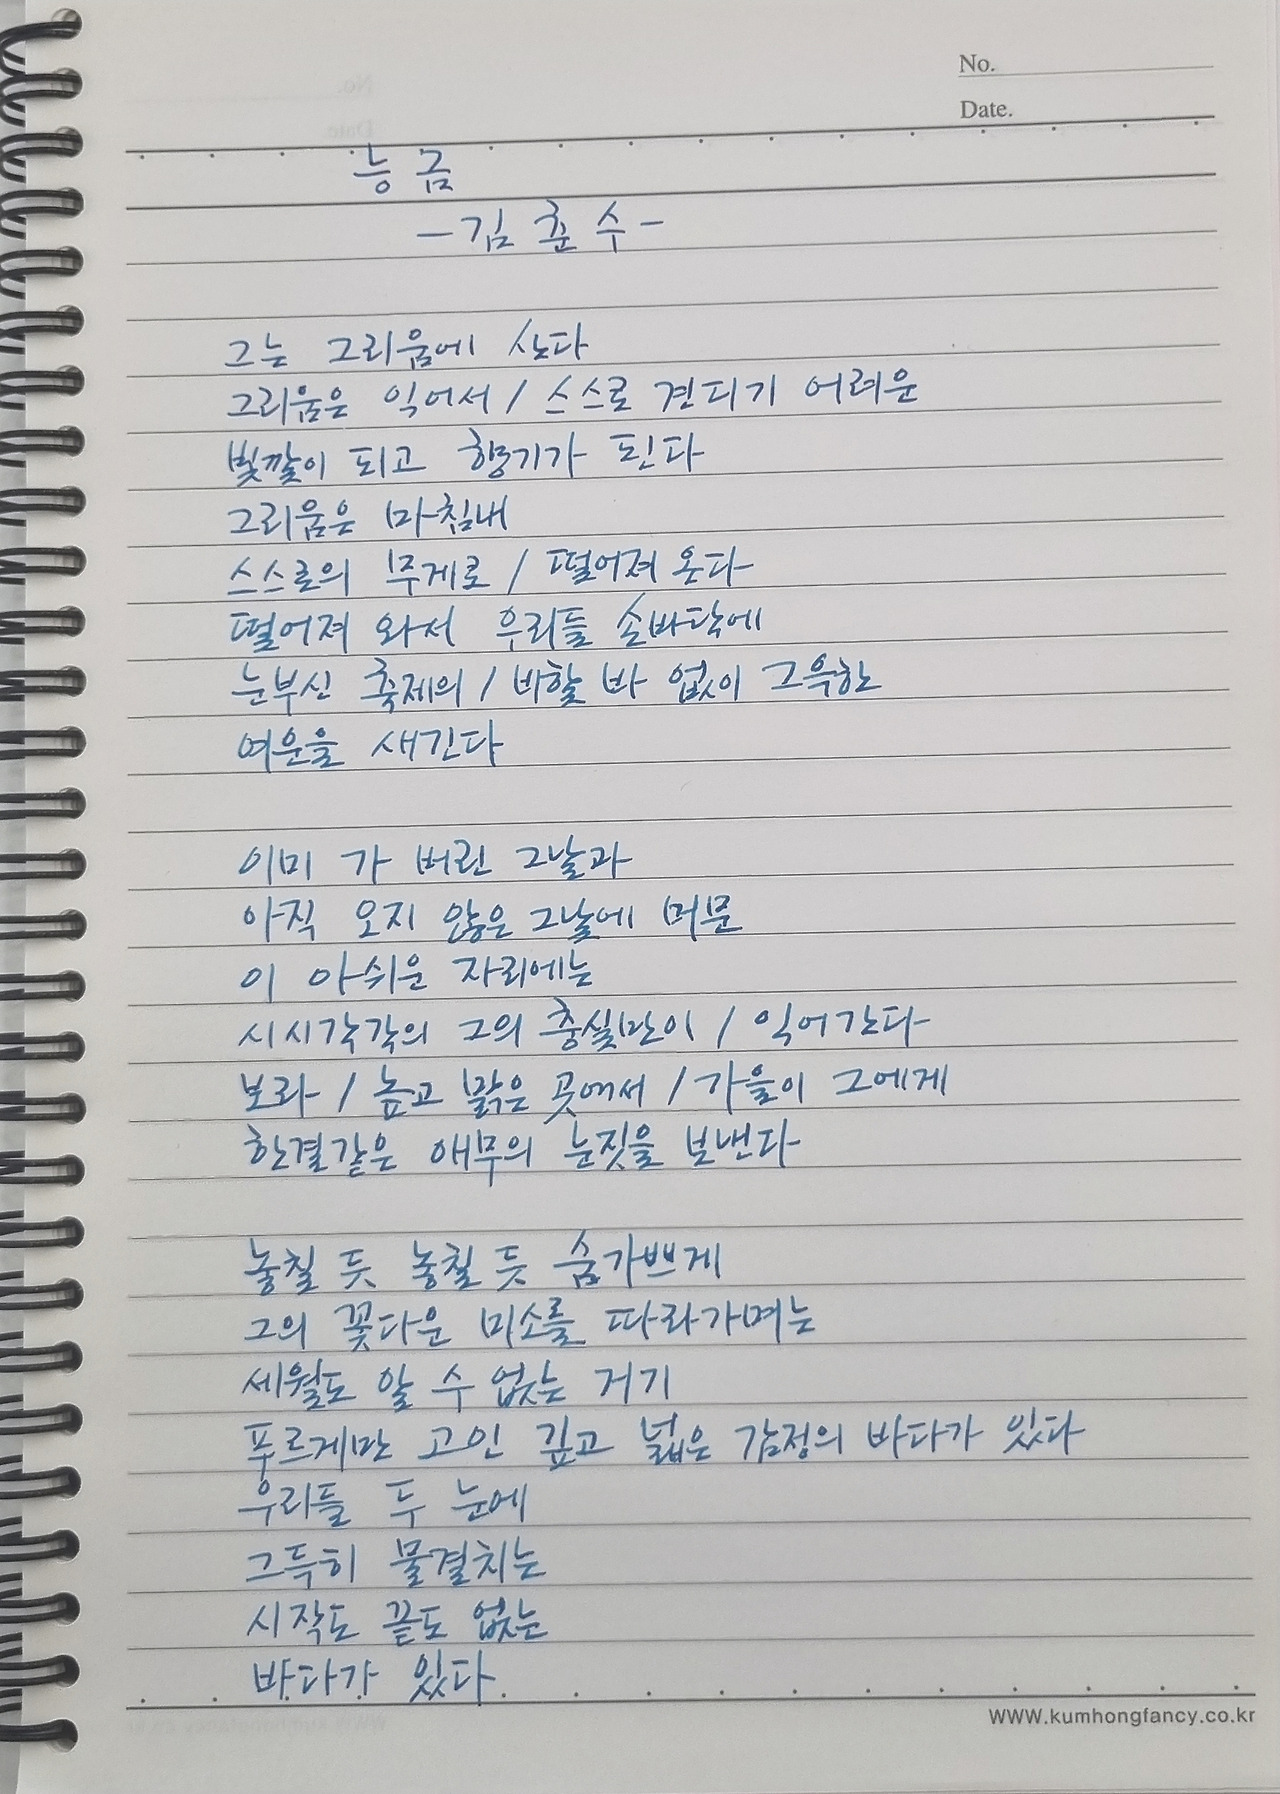 No.
Date.
능금
-김춘수-
그는 그리움에 산다
그리움은 익어서 / 스스로 견디기 어려운
빛깔이 되고 향기가 된다
그리움은 마침내
스스로의 무게로 / 떨어져 온다
떨어져 와서 우리들 손바닥에
눈부신 축제의 / 비할 바 없이 그윽한
여운을 새긴다
이미 가 버린 그날과
아직 오지 않은 그날에 머문
이 아쉬운 자리에는
시시각각의 그의 충실만이 / 익어간다
보라 / 높고 맑은 곳에서 / 가을이 그에게
한결같은 애무의 눈짓을 보낸다
놓칠 듯 놓칠 듯 숨가쁘게
그의 꽃다운 미소를 따라가며는
세월도 알 수 없는 거기
푸르게만 고인 깊고 넓은 감정의 바다가 있다
우리들 두 눈에
그득히 물결치는
시작도 끝도 없는
바다가 있다.
WWW.kumhongfancy.co.kr